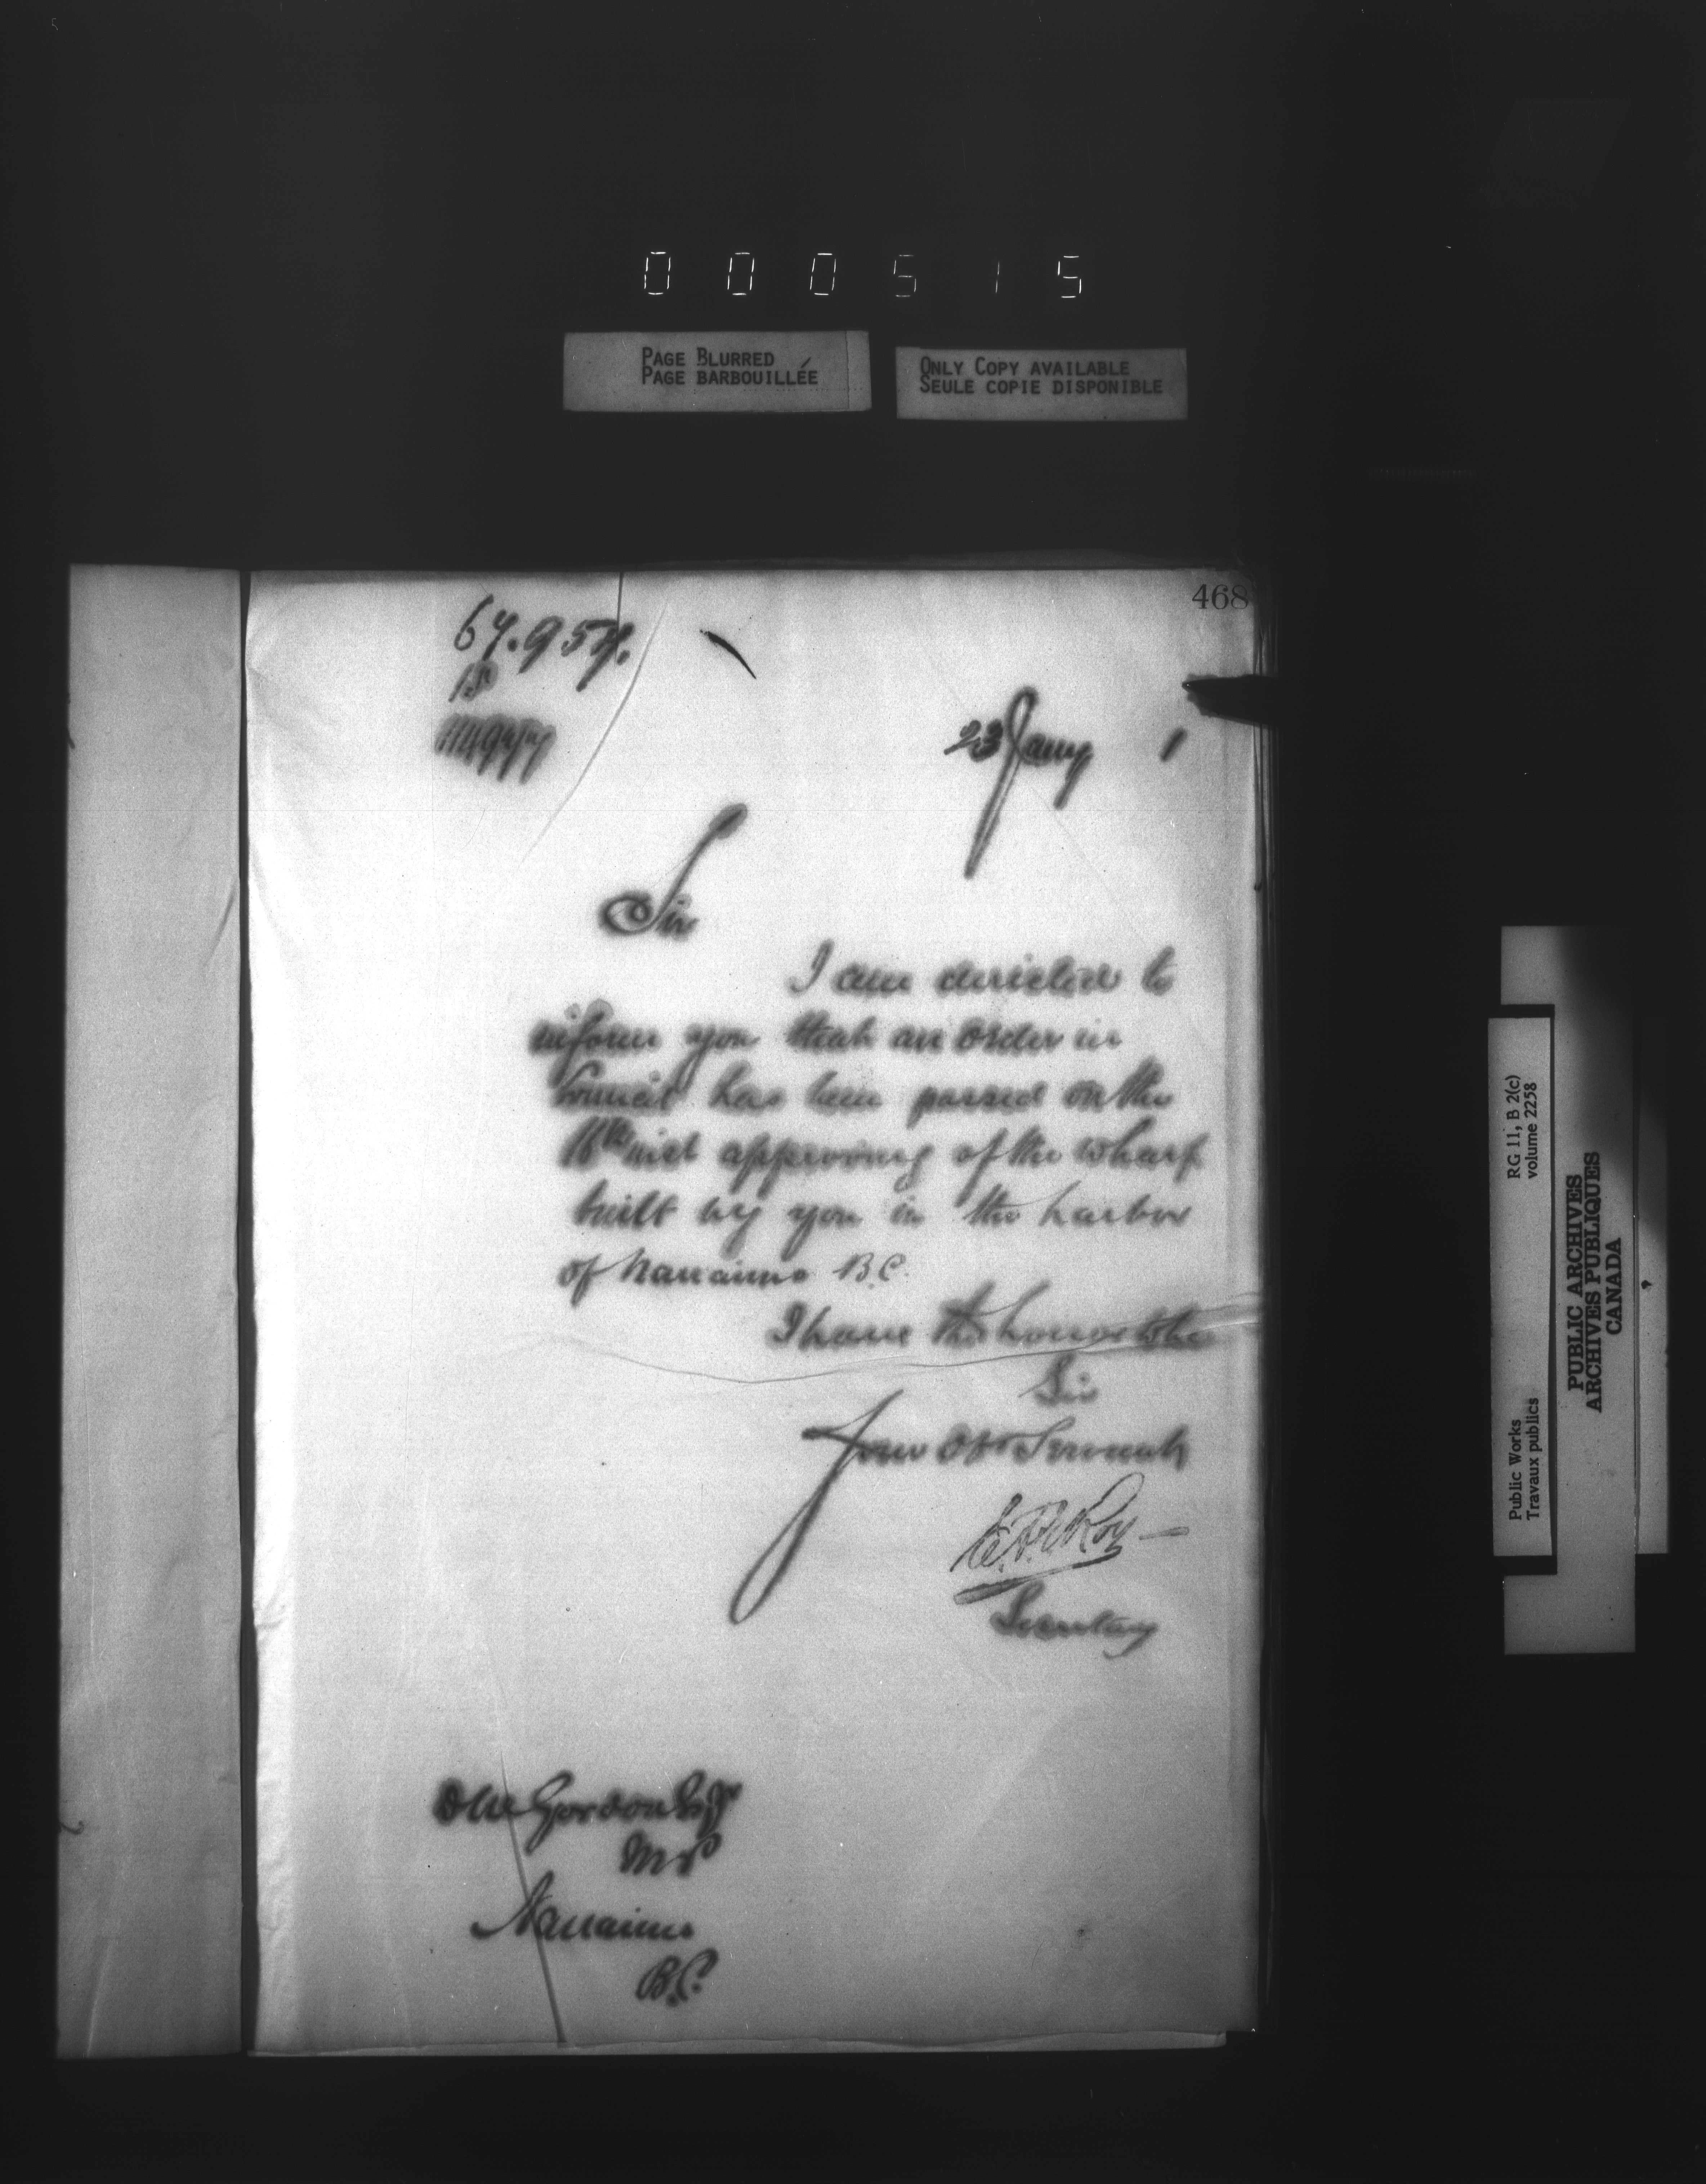 000515
PAGE BLURRED
PAGE BARBOUILLÉE
ONLY COPY AVAILABLE
SEULE COPIE DISPONIBLE
468
23 Jany 1
Sir
I am directed to
inform you that an Order in
Council has been passed on the
16th inst approving of the wharf
built by you in the harbor
of Nanaimo B.C.
I have the honor to be
Sir
Your Obt Servant
Secretary
D W Gordon Esqr
MP
Nanaimo
B.C.
Public Works
Travaux publics
RG 11, B 2(c)
volume 2258
PUBLIC ARCHIVES
ARCHIVES PUBLIQUES
CANADA